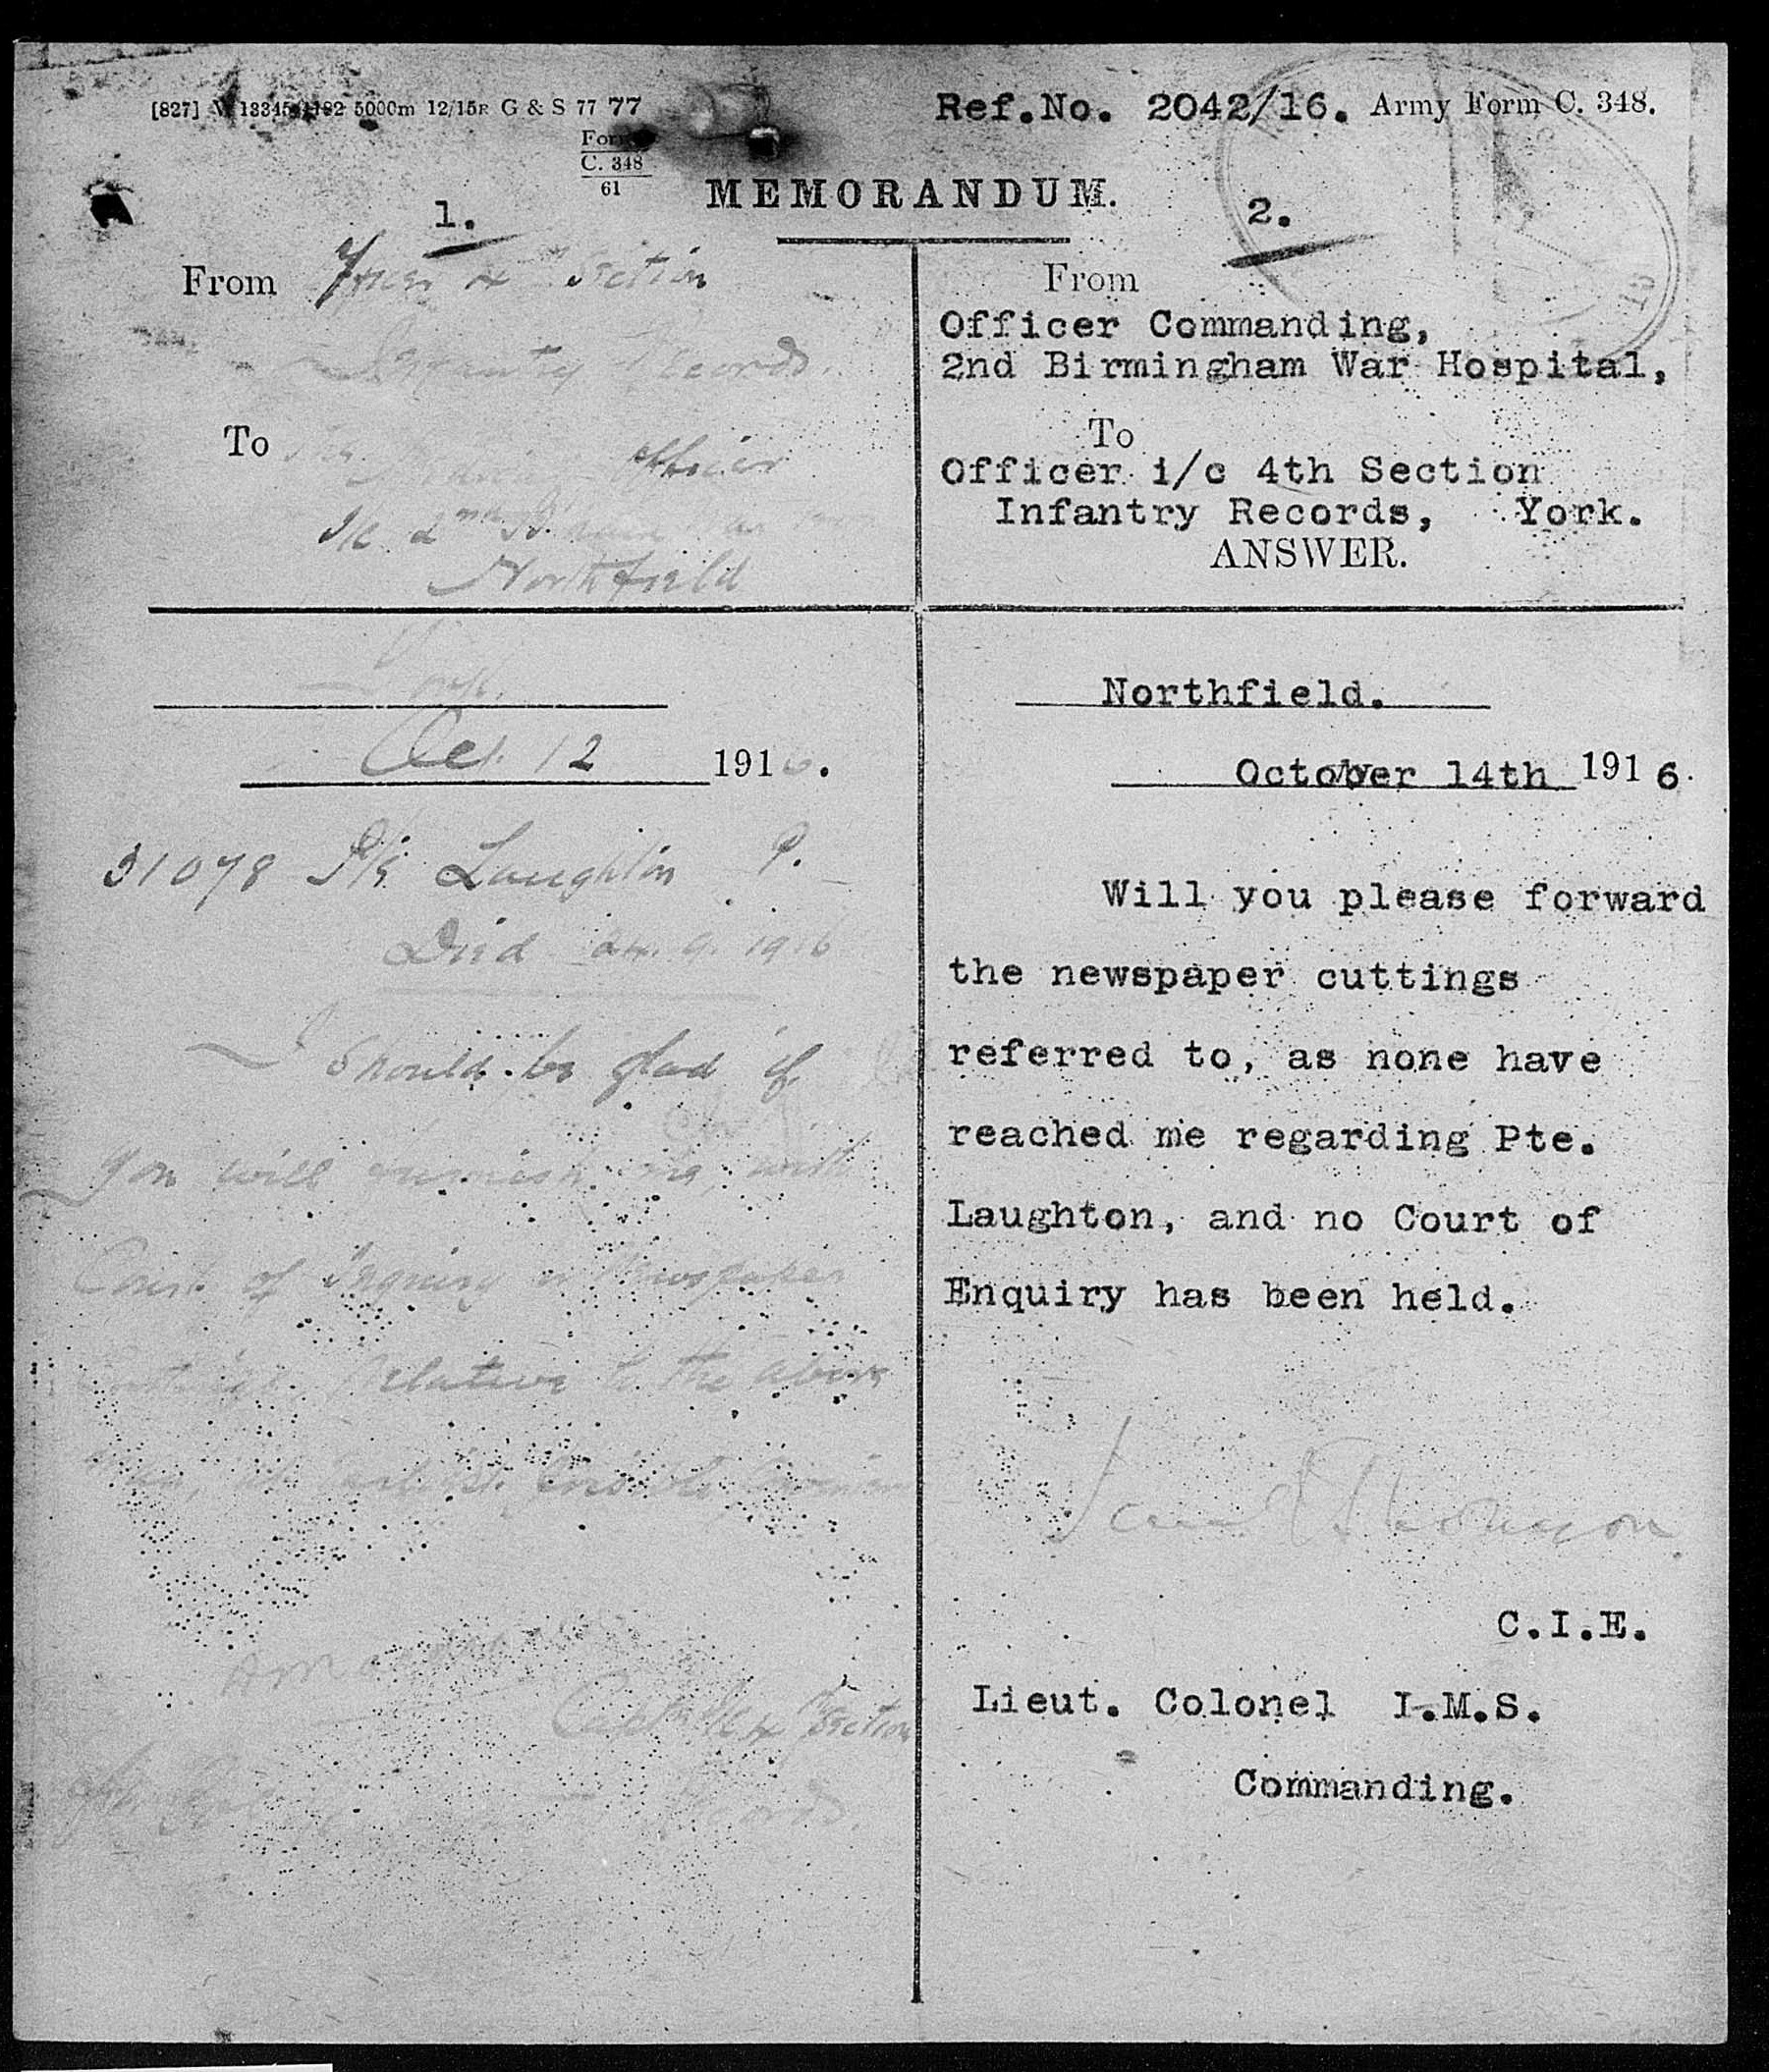 [827] W 13345 1182 5000m 12/15R G & S 77 77
Form
C. 348
61
Ref.No. 2042/16. Army Form C. 348.
MEMORANDUM.
1.
From 4 Section
Infantry Records.
To The Officer
I/C 2nd
Northfield
York.
Oct. 12 1916.
31078 Pte Laughlin P.
Died 24.9.1916
Should be glad if
you will furnish me, with
Court of Inquiry or Newspaper
Cuttings Relative to the above
Capt. I/C 4th Section
Records.
2.
From
Officer Commanding,
2nd Birmingham War Hospital,
To
Officer i/c 4th Section
Infantry Records, York.
ANSWER.
Northfield.
October 14th 1916.
Will you please forward
the newspaper cuttings
referred to, as none have
reached me regarding Pte.
Laughton, and no Court of
Enquiry has been held.
C.I.E.
Lieut. Colonel I.M.S.
Commanding.